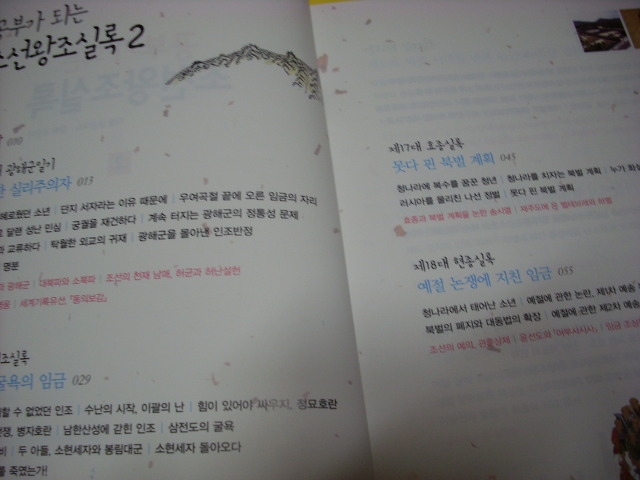 공부가 되는
조선왕조실록 2
010
광해군일기
실리주의자 013
소년 | 단지 서자라는 이유 때문에 | 우여곡절 끝에 오른 임금의 자리
달랜 성난 민심 | 궁궐을 재건하다 | 계속 터지는 광해군의 정통성 문제
교류하다 | 탁월한 외교의 귀재 | 광해군을 몰아낸 인조반정
광해군 | 대북파와 소북파 | 조선의 천재 남매, 허균과 허난설헌
세계기록유산 『동의보감』
조실록
굴욕의 임금 029
할 수 없었던 인조 | 수난의 시작, 이괄의 난 | 힘이 있어야 싸우지, 정묘호란
전쟁, 병자호란 | 남한산성에 갇힌 인조 | 삼전도의 굴욕
두 아들, 소현세자와 봉림대군 | 소현세자 돌아오다
를 죽였는가!
제17대 효종실록
못다 핀 북벌 계획 045
청나라에 복수를 꿈꾼 청년 | 청나라를 치자는 북벌 계획 | 누가
러시아를 물리친 나선 정벌 | 못다 핀 북벌 계획
효종과 북벌 계획을 논한 송시열 | 제주도에 온 벨테브레와 하멜
제18대 현종실록
예절 논쟁에 지친 임금 055
청나라에서 태어난 소년 | 예절에 관한 논란, 제1차 예송
북벌의 폐지와 대동법의 확장 | 예절에 관한 제2차 예송
조선의 예의, 관혼상제 | 윤선도와 「어부사시사」 | 임금